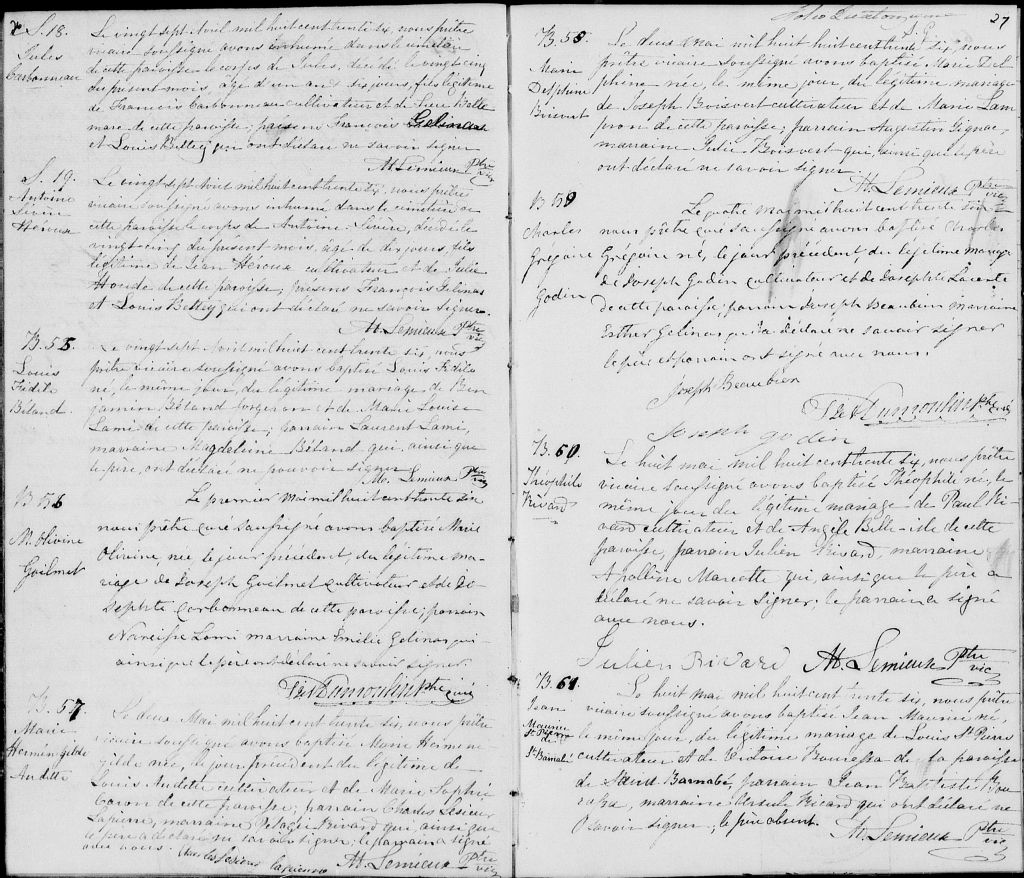 S. 18.
Jules
Carbonneau
Le vingt sept Avril mil huit cent trente six, nous prêtre
vicaire soussigné avons inhumé dans le cimetière
de cette paroisse le corps de Jules, décédé le vingt cinq
du présent mois, âgé d'un an et dix jours, fils légitime
de François Carbonneau cultivateur et de
de cette paroisse; présens François Gelinas
et Louis Bettez qui ont déclaré ne savoir signer
M. Lemieux Ptre
vic
S. 19.
Antoine
Sévère
Héroux
Le vingt sept Avril mil huit cent trente six, nous prêtre
vicaire soussigné avons inhumé dans le cimetière de
cette paroisse le corps de Antoine Sévère, décédé le
vingt cinq du présent mois, âgé de dix jours, fils
légitime de Jean Héroux cultivateur et de Julie
Houde de cette paroisse; présens François Gelinas
et Louis Bettez qui ont déclaré ne savoir signer.
M. Lemieux Ptre
vic
B. 55.
Louis
Fidèle
Béland.
Le vingt sept Avril mil huit cent trente six, nous
prêtre vicaire soussigné avons baptisé Louis Fidèle
né, le même jour, du légitime mariage de Ben
jamin Béland forgeron et de Marie Louise
Lami de cette paroisse; parrain Laurent Lami,
marraine Magdeleine Béland qui, ainsi que
le père, ont déclaré ne pouvoir signer
M. Lemieux Ptre
vic
B 56
M. Olivine
Guilmet
Le premier Mai mil huit cent trente six
nous prêtre curé soussigné avons baptisé Marie
Olivine, née le jour précédent, du légitime ma-
riage de Joseph Guilmet cultivateur et de Jo-
sephte Carbonneau de cette paroisse; parrain
Narcisse Lami marraine Emilie Gelinas qui
ainsi que le père ont déclaré ne savoir signer
Dumoulin Ptre curé
B. 57.
Marie
Herménégilde
Audette
Le deux Mai mil huit cent trente six, nous prêtre
vicaire soussigné avons baptisé Marie Hermene-
gilde née, le jour précédent du légitime de
Louis Audette cultivateur et de Marie Sophie
Caron de cette paroisse; parrain Charles Lesieur
Lapierre, marraine Pelagie Rivard qui, ainsi que
le père a déclaré ne savoir signer; le parrain a signé
avec nous.
Charles Lesieur Lapierre
M. Lemieux Ptre
vic
27
B. 58.
Marie
Delphine
Boisvert
Le deux Mai mil huit cent trente six, nous
prêtre vicaire soussigné avons baptisé Marie Del
phine née, le même jour, du légitime mariage
de Joseph Boisvert cultivateur et de Marie Lam
pron de cette paroisse; parrain Augustin Gignac,
marraine Julie Boisvert qui, ainsi que le père
ont déclaré ne savoir signer.
M. Lemieux Ptre
vic
B 59
Charles
Grégoire
Godin
Le quatre Mai mil huit cent trente six
nous prêtre curé soussigné avons baptisé Charles
Grégoire né, le jour précédent du légitime mariage
de Joseph Godin cultivateur et de Josephte Lacerte
de cette paroisse; parrain Joseph Beaubien marraine
Esther Gelinas qui a déclaré ne savoir signer
le père et parrain ont signé avec nous.
Joseph Beaubien
Dumoulin Ptre curé
Joseph godin
B. 60.
Théophile
Rivard
Le huit Mai mil huit cent trente six, nous prêtre
vicaire soussigné avons baptisé Théophile né, le
même jour du légitime mariage de Paul Ri
vard cultivateur et de Angèle Belle-isle de cette
paroisse, parrain Julien Rivard, marraine
Apolline Marcotte qui, ainsi que le père a
déclaré ne savoir signer; le parrain a signé
avec nous.
Julien Rivard M. Lemieux Ptre
vic
B. 61.
Jean
Maurice
St Pierre
de
St Barnabé
Le huit Mai mil huit cent trente six, nous prêtre
vicaire soussigné avons baptisé Jean Maurice né,
le même jour, du légitime mariage de Louis St Pierre
cultivateur et de Victoire Bourassa de la paroisse
de Saint Barnabé, parrain Jean Baptiste Bou
rassa, marraine Ursule Ricard qui ont déclaré ne
savoir signer; le père absent.
M. Lemieux Ptre
vic